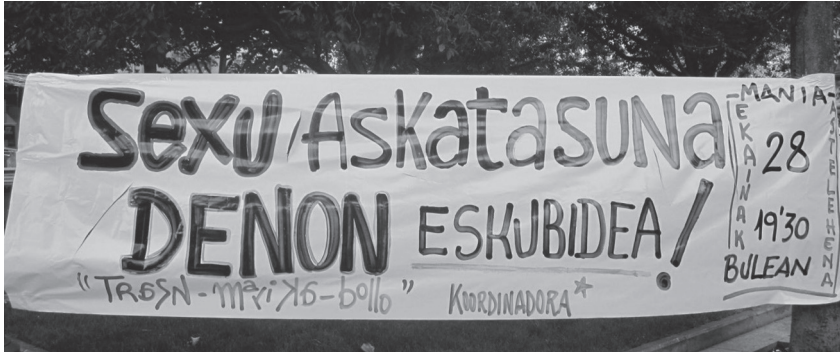 Sexu Askatasuna
DENON ESKUBIDEA!
"TRASN-marika-bollo" KOORDINADORA*
-MANIA-
EKAINAK
28
19'30
BULEAN